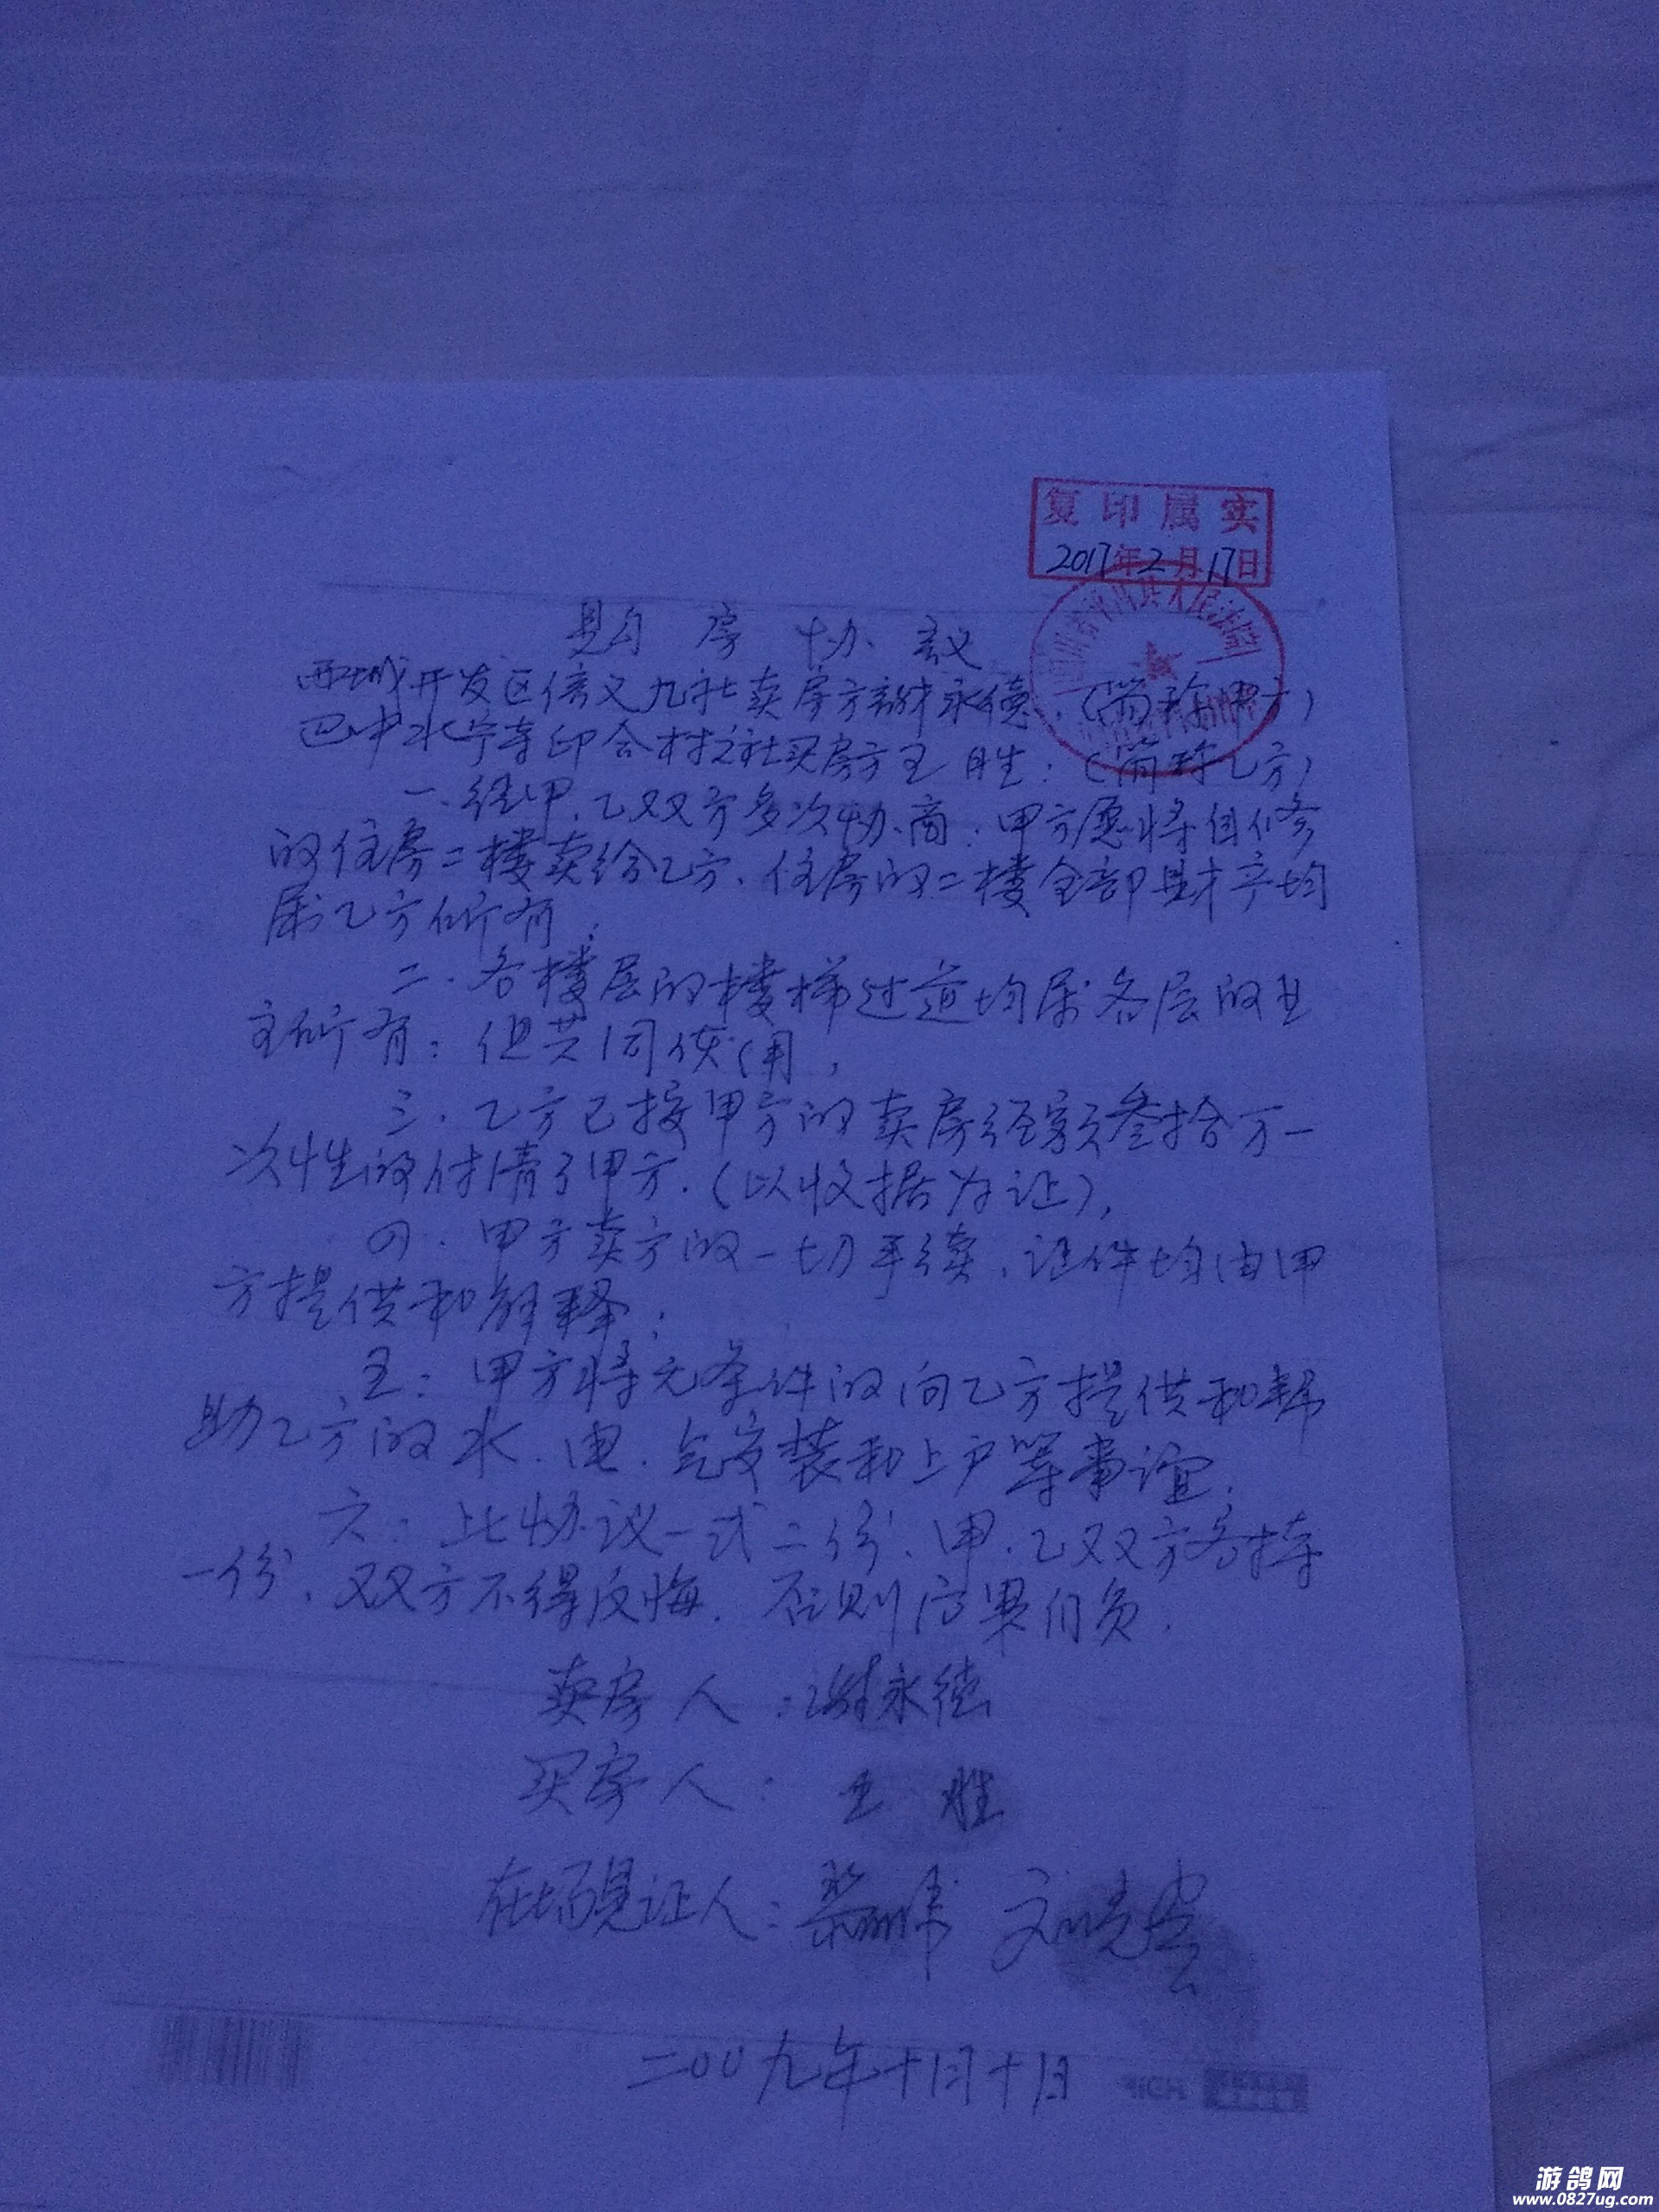 复印属实
2017年2月17日
四川省平昌县人民法院
购房协议
西城开发区信义九社卖房方谢永德:(简称甲方)
巴中水宁寺印合村六社买房方王胜:(简称乙方)
一、经甲、乙双方多次协商:甲方愿将自修
的住房二楼卖给乙方、住房的二楼全部财产均
属乙方所有;
二、各楼层的楼梯过道均属各层的业
主所有:但共同使用,
三、乙方已按甲方的卖房经额叁拾万一
次性的付清了甲方.(以收据为证),
四、甲方卖方的一切手续,证件均由甲
方提供和解释;
五:甲方将无条件的向乙方提供和帮
助乙方的水、电、气安装和上户等事谊.
六:此协议一式二份、甲、乙双方各持
一份、双方不得反悔.否则后果自负.
卖房人:谢永德
买房人:王胜
在场见证人:
二00九年十月十日
RICH
游鸽网
www.0827ug.com